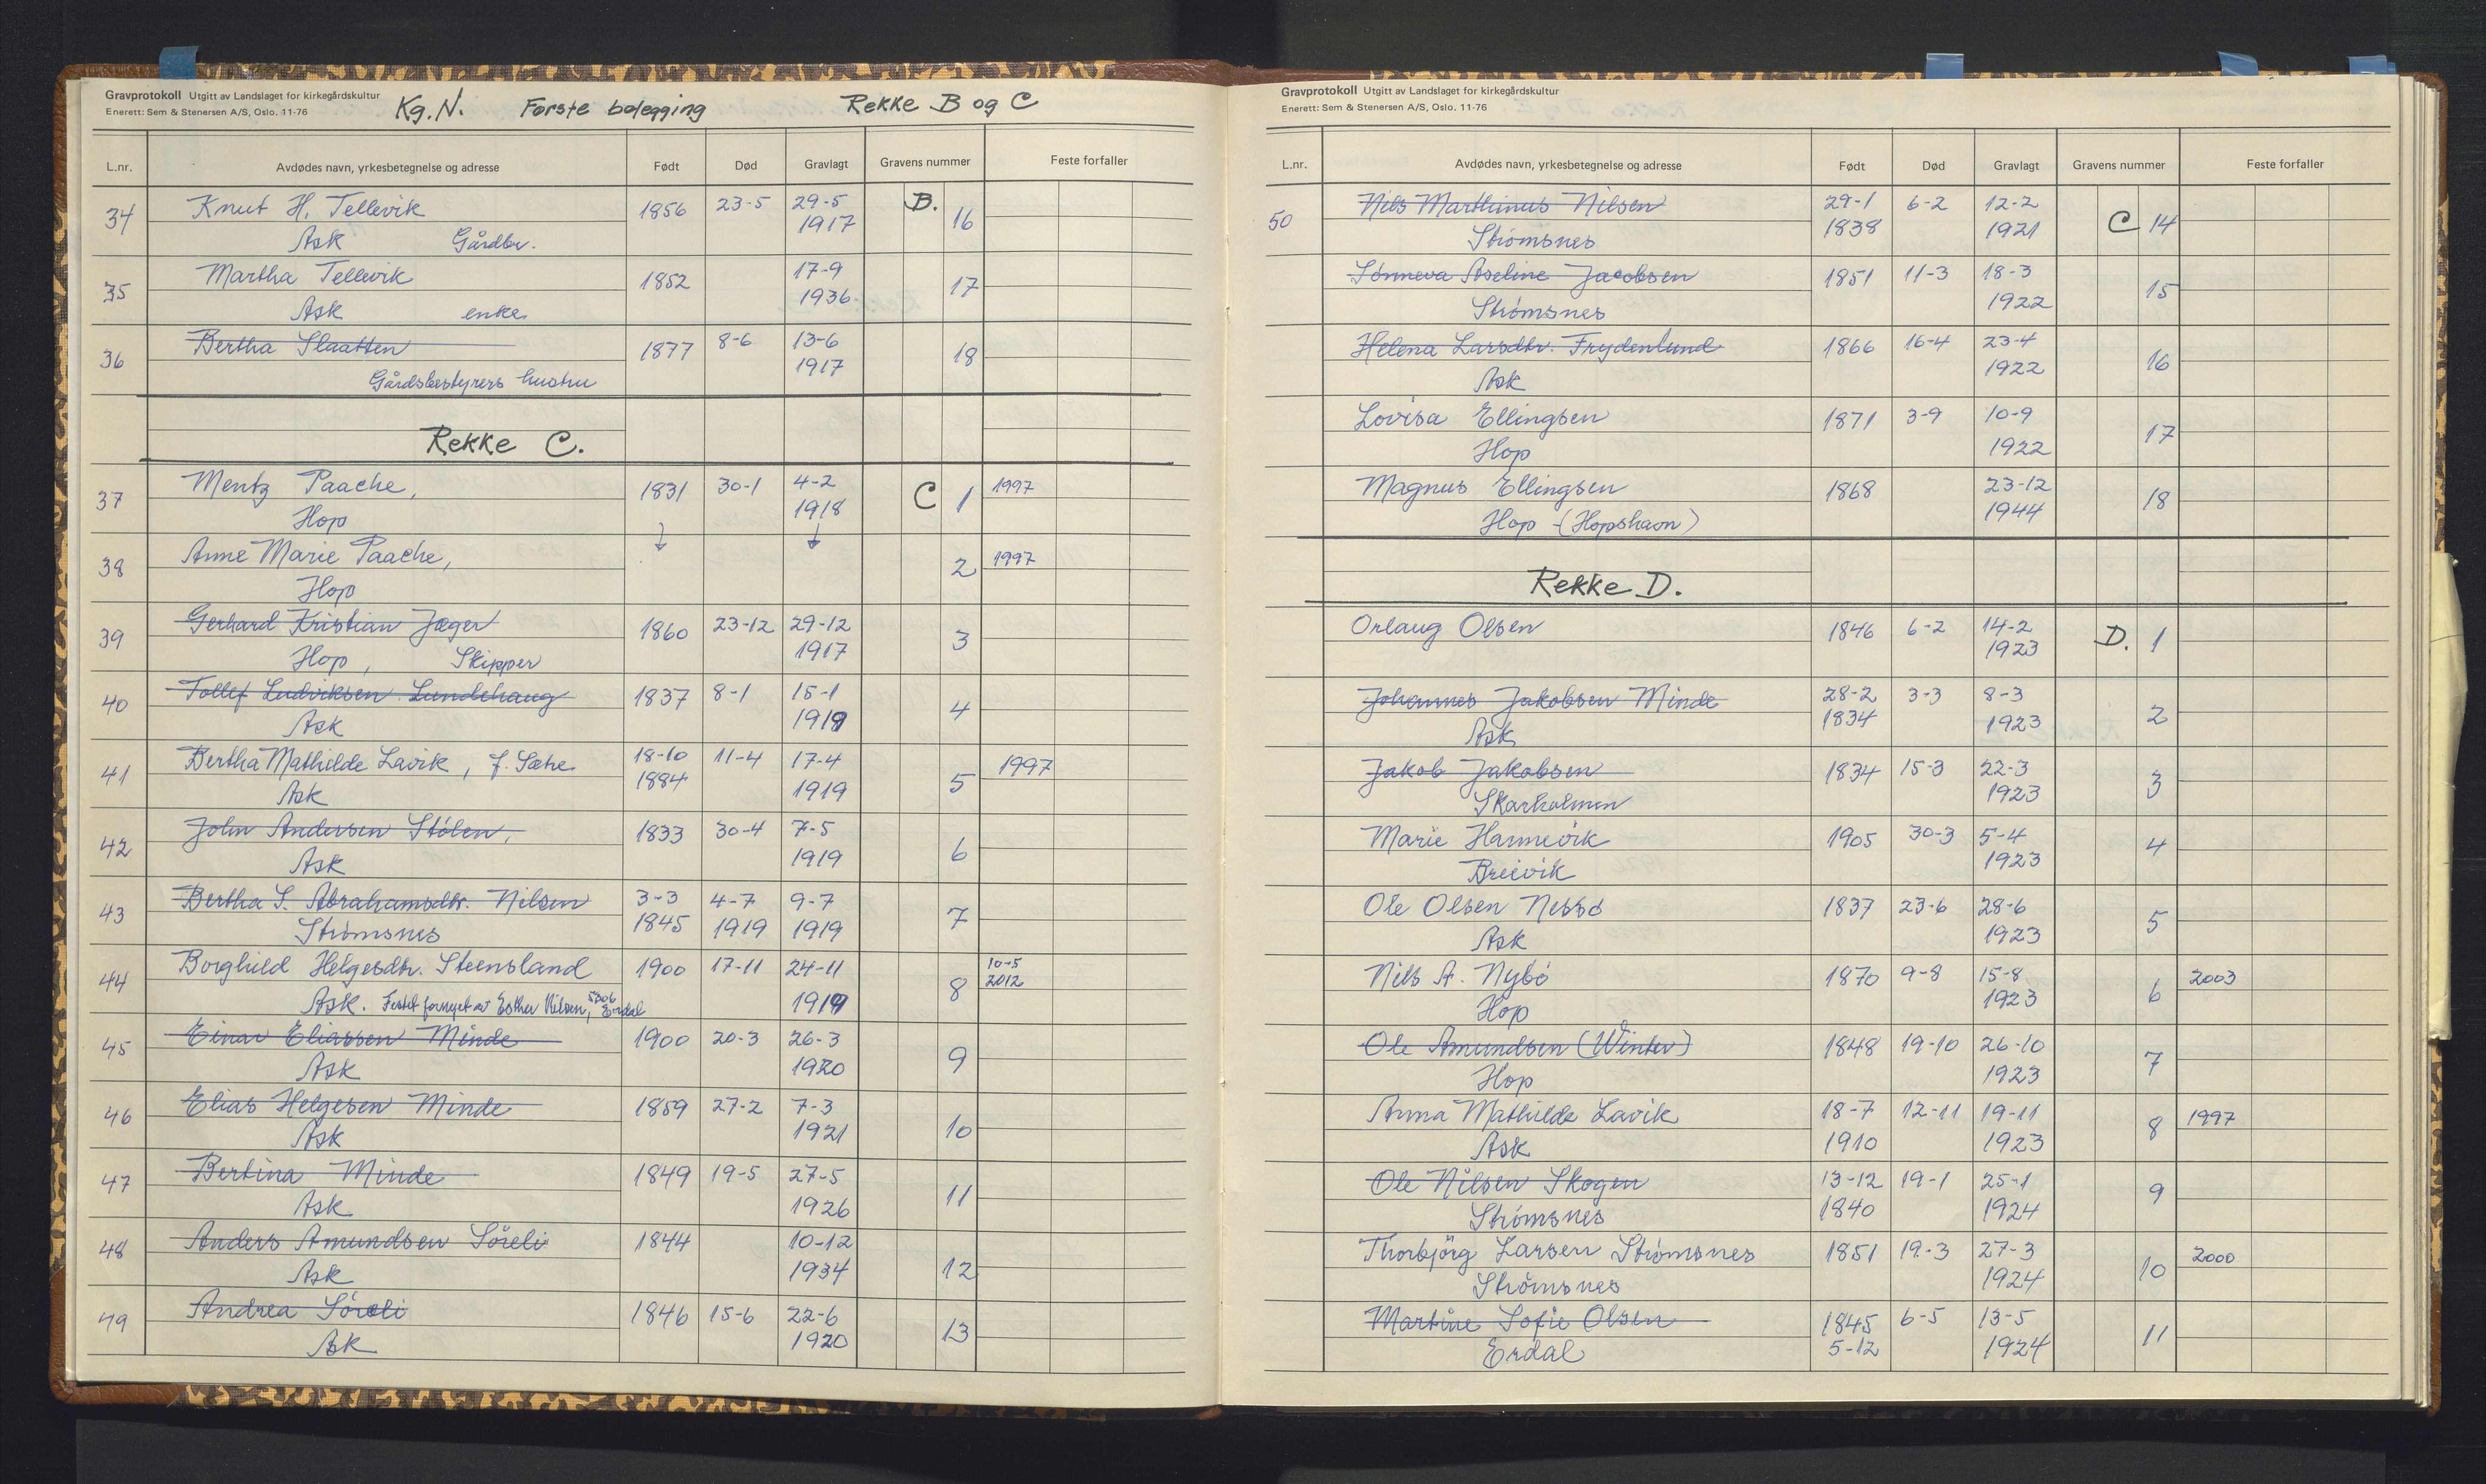 Gravprotokoll Utgitt av Landslaget for kirkegårdskultur
Enerett: Sem & Stenersen A/S, Oslo. 11-76
Kg. N. Første belegging Rekke B og C
L.nr. Avdødes navn, yrkesbetegnelse og adresse Født Død Gravlagt Gravens nummer Feste forfaller
34 Knut H. Tellevik 1856 23-5 29-5 B. 16
Ask Gårdbr. 1917
35 Martha Tellevik 1852 17-9 17
Ask enke 1936
36 Bertha Slaatten 1877 8-6 13-6 18
Gårdsbestyrers hustru 1917
Rekke C.
37 Mentz Paache, 1831 30-1 4-2 C 1 1997
Hop 1918
38 Anne Marie Paache, 2 1997
Hop
39 Gerhard Kristian Jæger 1860 23-12 29-12 3
Hop, Skipper 1917
40 Tollef Ludviksen Lundehaug 1837 8-1 15-1 4
Ask 1919
41 Bertha Mathilde Lavik, f. Sæhe 18-10 11-4 17-4 5 1997
Ask 1884 1919
42 John Andersen Stølen, 1833 30-4 7-5 6
Ask 1919
43 Bertha S. Abrahamsdtr. Nilsen 3-3 4-7 9-7 7
Strømsnes 1845 1919 1919
44 Borghild Helgesdtr. Steensland 1900 17-11 24-11 8 10-5
2012
Ask. Festet fornyet av Esther Nilsen, 5306 Erdal 1919
45 Einar Eliassen Minde 1900 20-3 26-3 9
Ask 1920
46 Elias Helgesen Minde 1859 27-2 7-3 10
Ask 1921
47 Bertina Minde 1849 19-5 27-5 11
Ask 1926
48 Anders Amundsen Söreli 1844 10-12 12
Ask 1934
49 Andrea Söreli 1846 15-6 22-6 13
Ask 1920
Gravprotokoll Utgitt av Landslaget for kirkegårdskultur
Enerett: Sem & Stenersen A/S, Oslo. 11-76
L.nr. Avdødes navn, yrkesbetegnelse og adresse Født Død Gravlagt Gravens nummer Feste forfaller
50 Nils Marthinus Nilsen 29-1 6-2 12-2 C 14
Strømsnes 1838 1921
Sønneva Aseline Jacobsen 1851 11-3 18-3 15
Strømsnes 1922
Helena Larsdtr. Frydenlund 1866 16-4 23-4 16
Ask 1922
Lovisa Ellingsen 1871 3-9 10-9 17
Hop 1922
Magnus Ellingsen 1868 23-12 18
Hop (Hopshavn) 1944
Rekke D.
Orlaug Olsen 1846 6-2 14-2 D. 1
1923
Johannes Jakobsen Minde 28-2 3-3 8-3 2
Ask 1834 1923
Jakob Jakobsen 1834 15-3 22-3 3
Skarholmen 1923
Marie Hannevik 1905 30-3 5-4 4
Breivik 1923
Ole Olsen Nessø 1837 23-6 28-6 5
Ask 1923
Nils A. Nybø 1870 9-8 15-8 6 2003
Hop 1923
Ole Amundsen (Winter) 1848 19-10 26-10 7
Hop 1923
Anna Mathilde Lavik 18-7 12-11 19-11 8 1997
Ask 1910 1923
Ole Nilsen Skogen 13-12 19-1 25-1 9
Strømsnes 1840 1924
Thorbjörg Larsen Strømsnes 1851 19-3 27-3 10 2000
Strømsnes 1924
Martine Sofie Olsen 1845 6-5 13-5 11
Erdal 5-12 1924